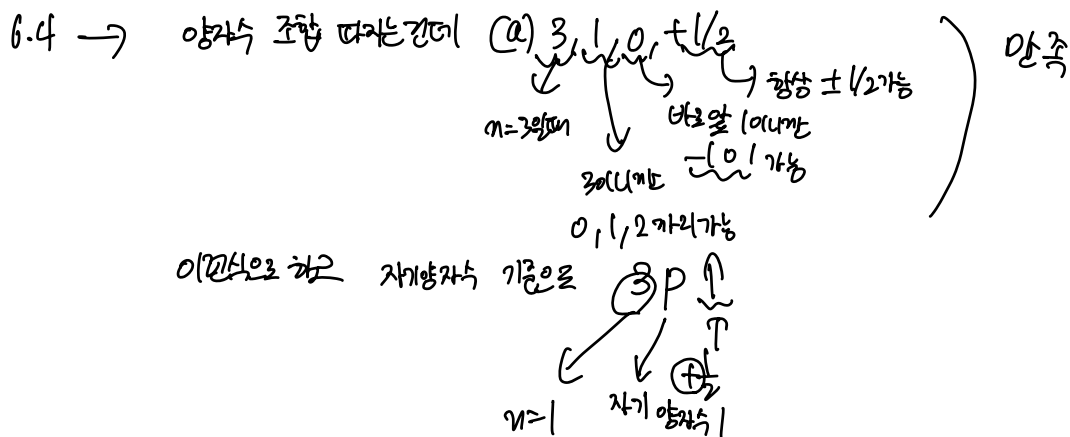 6.4 → 양자수 조합 따지는건데 (a) 3, 1, 0, +1/2 만족
항상 ±1/2가능
n=3일때 바로앞 1이니깐
-1 0 1 가능
3이니깐
0, 1, 2 까지가능
이런식으로 하고 자기양자수 기준으로 3 P ↑
+1/2
n=1 자기 양자수 1